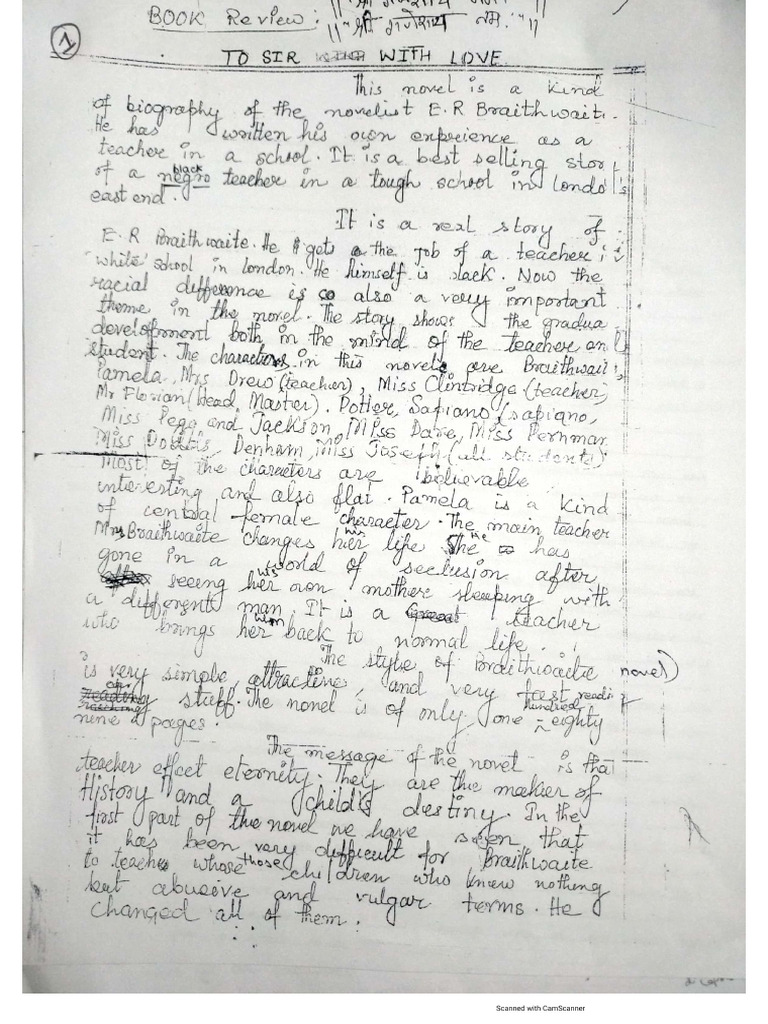 BOOK Review :
"श्री गणेशाय नमः"
1
TO SIR WITH LOVE
This novel is a kind
of biography of the novelist E.R Braithwaite.
He has written his own expreience as a
teacher in a school. It is a best selling story
of a negro black teacher in a tough school in London's
east end.
It is a real story of
E. R Braithwaite. He gets a the job of a teacher in
white school in london. He himself is black. Now the
racial difference is also a very important
theme in the novel. The story shows the gradual
development both in the mind of the teacher and
student. The characters in this novel are Braithwaite,
Pamela, Mrs Drew (teacher), Miss Clintridge (teacher,
Mr Florian (head Master). Potter, Sapiano (sapiano,
Miss Pegg and Jackson, Miss Dare, Miss Pernman
Miss Denham, Miss Joseph (all students)
Most of the characters are believable
interesting and also flat. Pamela is a kind
of central female character. The main teacher
Mr Braithwaite changes his life he has
gone in a world of seclusion after
seeing his own mother sleeping with
a different man. It is a teacher
who brings him back to normal life.
The style of Braithwaite novel)
is very simple, attractive, and very fast reading
stuff. The novel is of only one hundred eighty
nine pages.
The message of the novel is that
teacher effect eternity. They are the maker of
History and a child's destiny. In the
first part of the novel we have seen that
it has been very difficult for Braithwaite
to teach those children who knew nothing
but abusive and vulgar terms. He
changed all of them.
Scanned with CamScanner